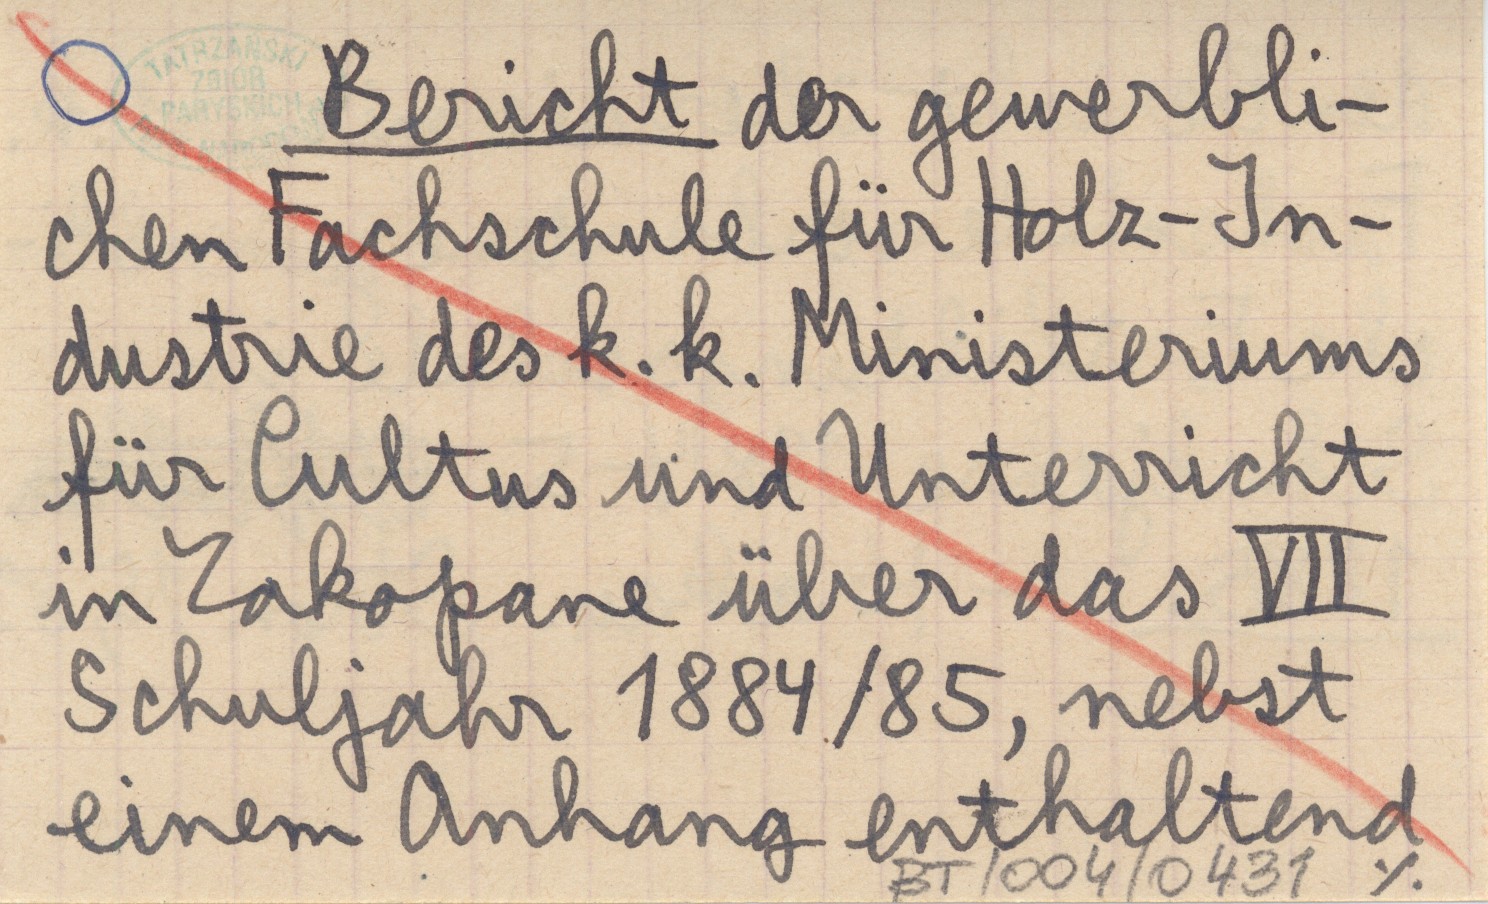 TATRZAŃSKI
ZBIÓR
PARYSKICH
Bericht der gewerbli-
chen Fachschule für Holz-In-
dustrie des k. k. Ministeriums
für Cultus und Unterricht
in Zakopane über das VII
Schuljahr 1884/85, nebst
einem Anhang enthaltend
BT/004/0431 ./.